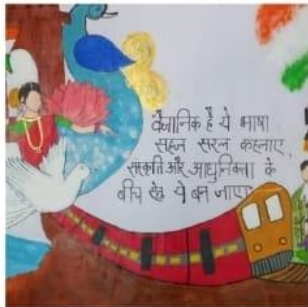 वैज्ञानिक है ये भाषा
सहज सरल कहलाए,
संस्कृति और आधुनिकता के
बीच सेतु ये बन जाए